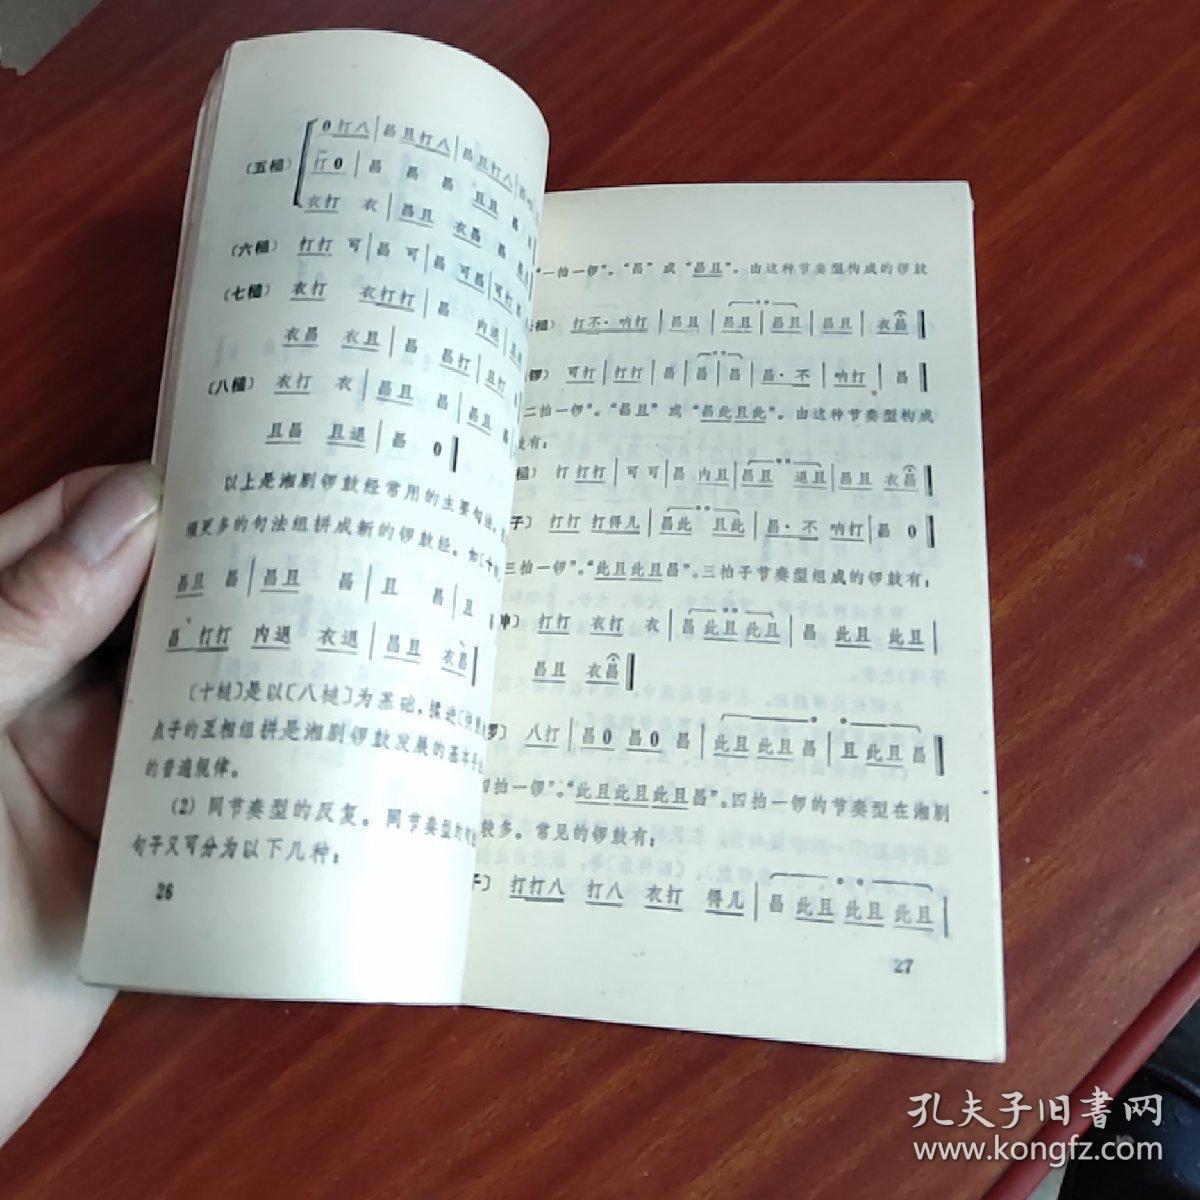 0打八|昌且打八|昌且打八|昌
(五槌) 打0|昌 昌 昌 且且 昌
衣打 衣|昌且 衣昌 昌
(六槌) 打打 可|昌 可|昌 可昌|可打
(七槌) 衣打 衣打打|昌 内退
衣昌 衣且|昌 昌打|且打
(八槌) 衣打 衣|昌且 昌|昌且
且昌 且退|昌 0
以上是湘剧锣鼓经常用的主要句法
更多的句法组拼成新的锣鼓经。如〔十
昌且 昌|昌且 昌|且 昌|且
昌 打打 内退 衣退|昌且 衣昌
〔十槌〕是以〔八槌〕为基础，
点子的互相组拼是湘剧锣鼓发展的基本手
的普遍规律。
(2) 同节奏型的反复。同节奏型
句子又可分为以下几种：
26
“一拍一锣”。“昌”或“昌且”。由这种节奏型构成的锣鼓
槌〕 打不·呐打|昌且|昌且|昌且|昌且|衣昌
锣〕 可打|打打|昌|昌|昌|昌·不|呐打|昌
二拍一锣”。“昌且”或“昌此且此”。由这种节奏型构成
鼓有：
槌〕 打 打打|可可|昌 内且|昌且 退且|昌且 衣昌
子〕 打打 打得儿|昌此 且此|昌·不 呐打|昌 0
三拍一锣”。“此且此且昌”。三拍子节奏型组成的锣鼓有：
冲〕 打打 衣打 衣|昌 此且 此且|昌 此且 此且|
昌且 衣昌
锣〕 八打|昌0 昌0 昌|此且 此且 昌|且 此且 昌
四拍一锣”。“此且此且此且昌”。四拍一锣的节奏型在湘剧
较多。常见的锣鼓有：
子〕 打打八 打八 衣打 得儿|昌 此且 此且 此且|
27
孔夫子旧書网
www.kongfz.com